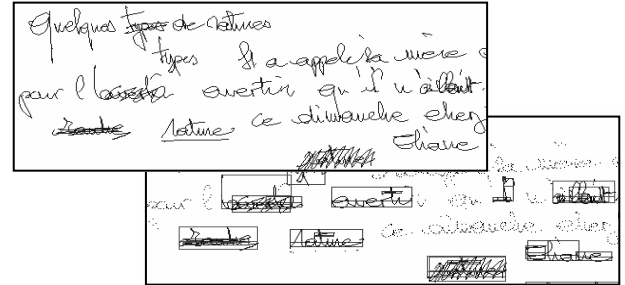 Quelques types de ratures
types Il a appelé sa mère
pour l' avertir qu'il n'allait
rature ce dimanche chez
Eliane
sa mère
pour l' avertir qu' n' allait
rature ce dimanche chez
Eliane